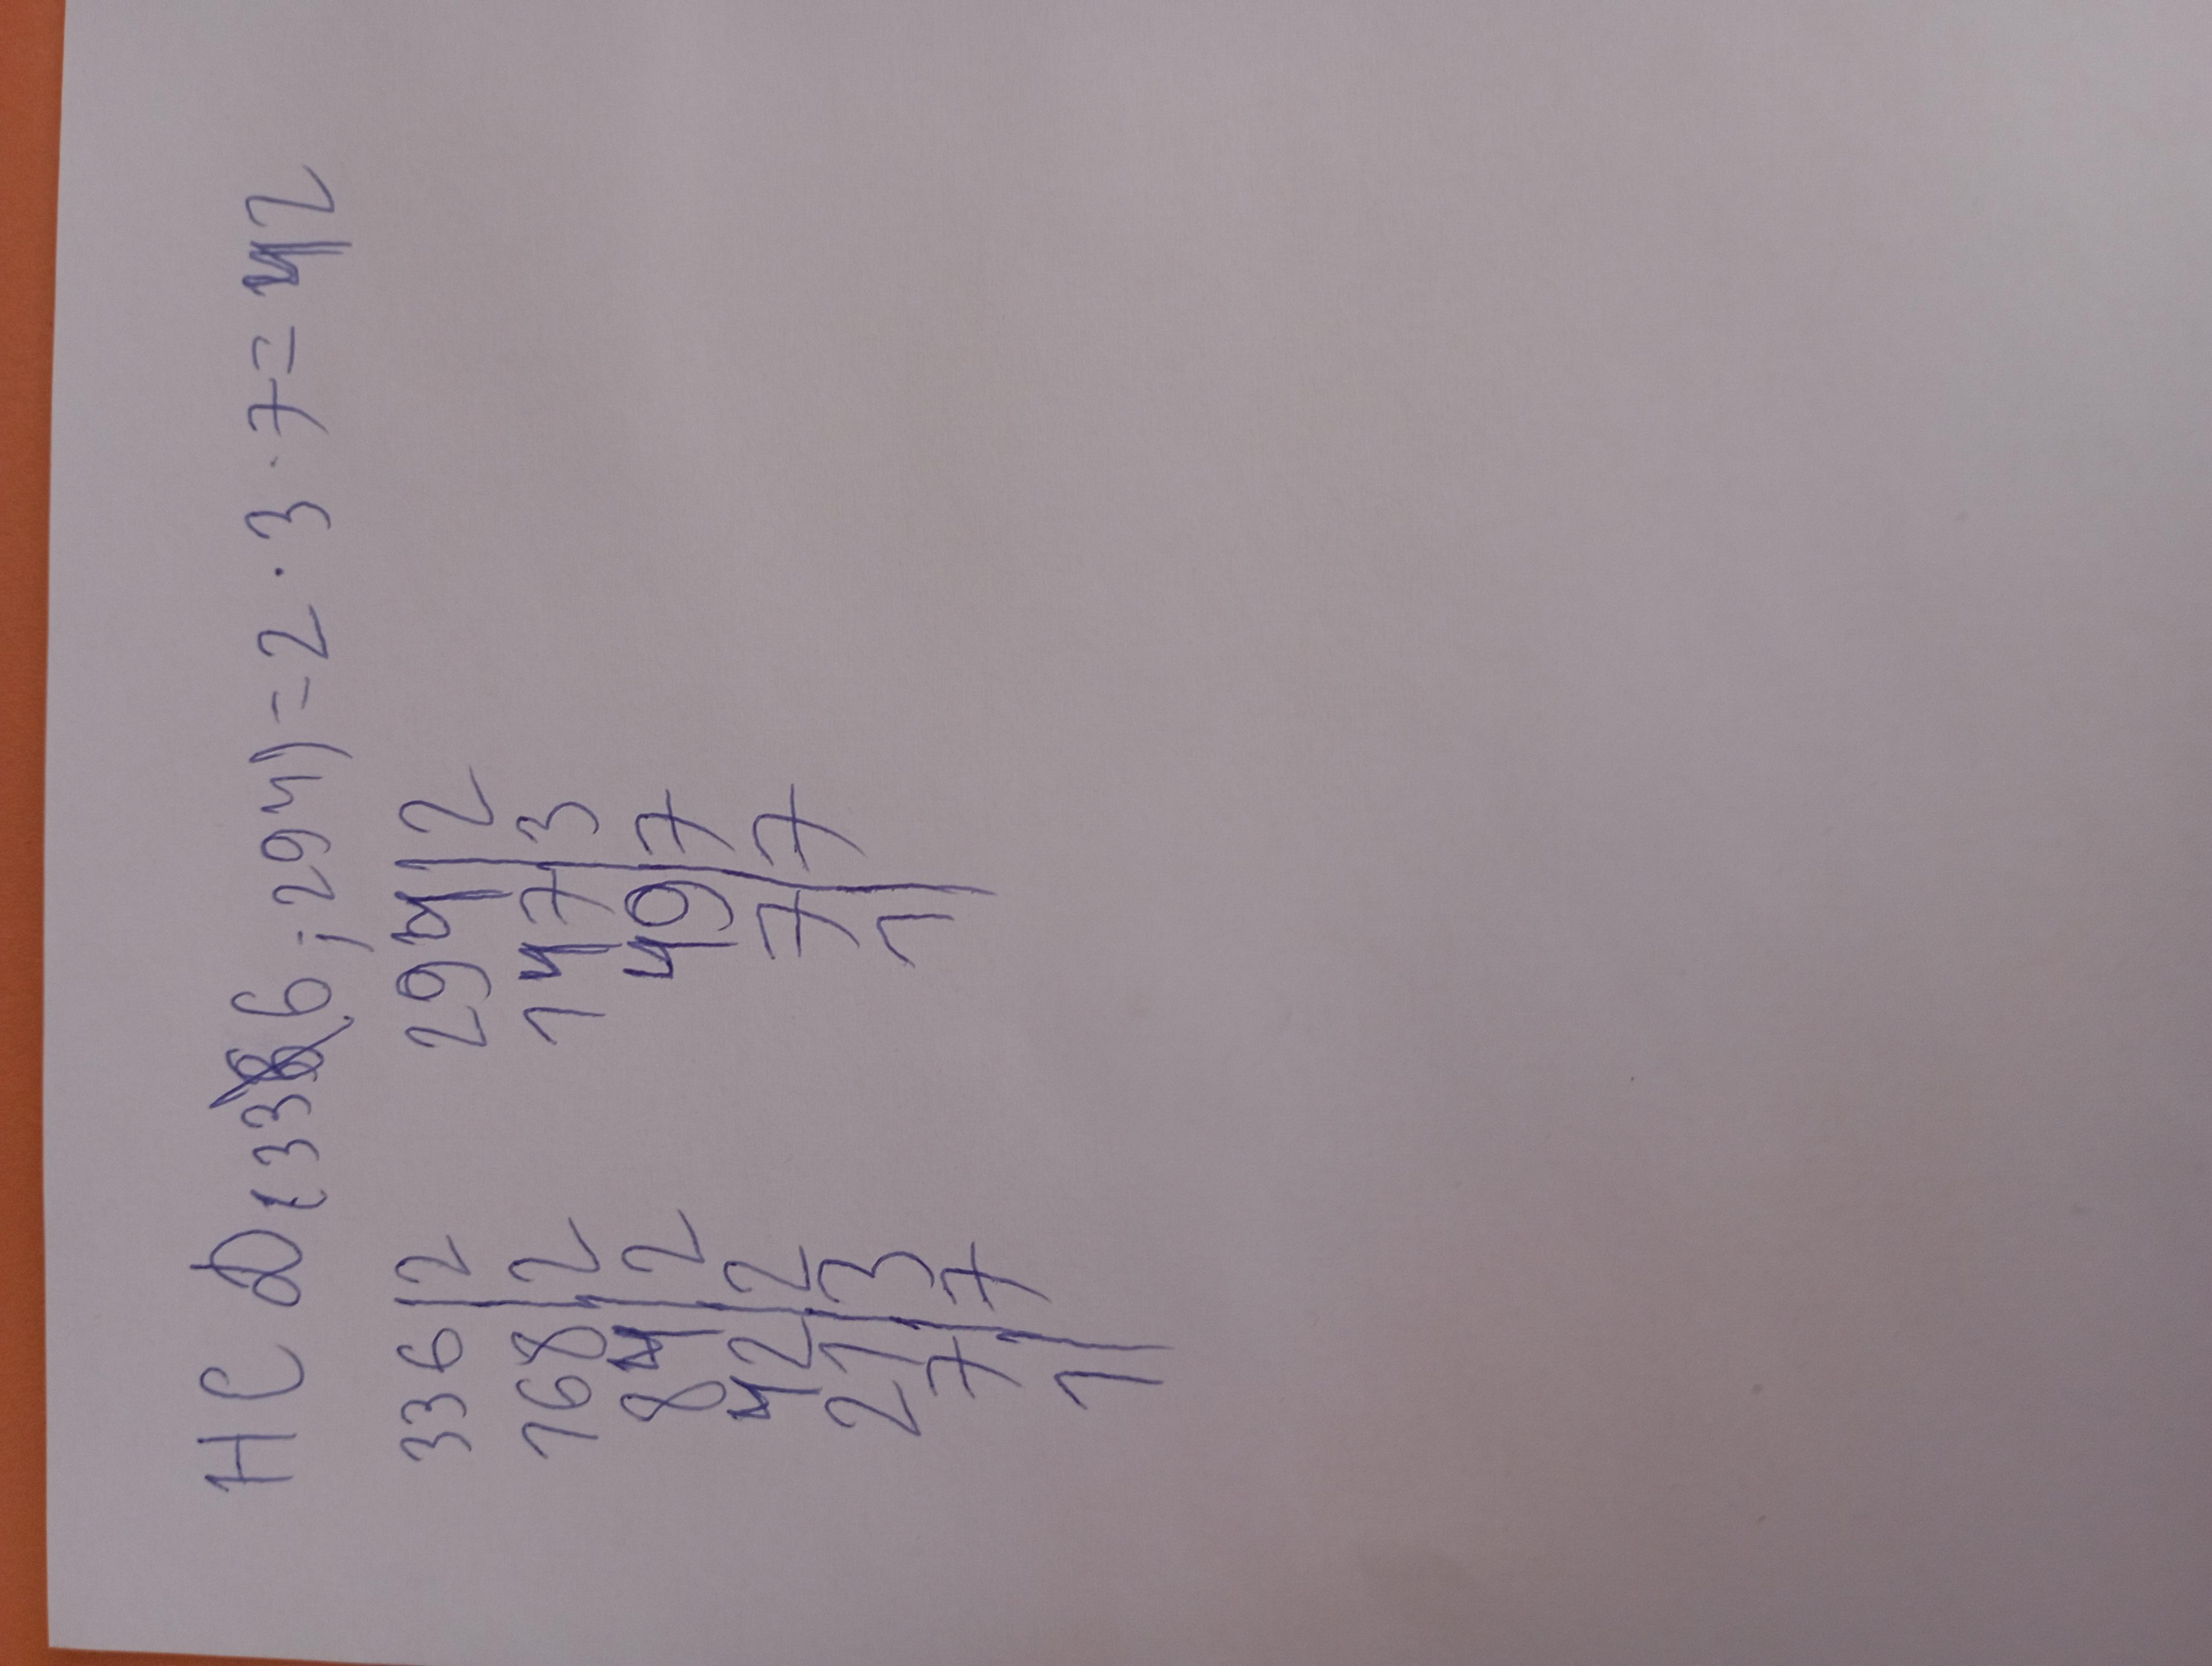 НСД(336;294)=2·3·7=42
336|2 294|2
168|2 147|3
84|2 49|7
42|2 7|7
21|3 1|
7|7
1|